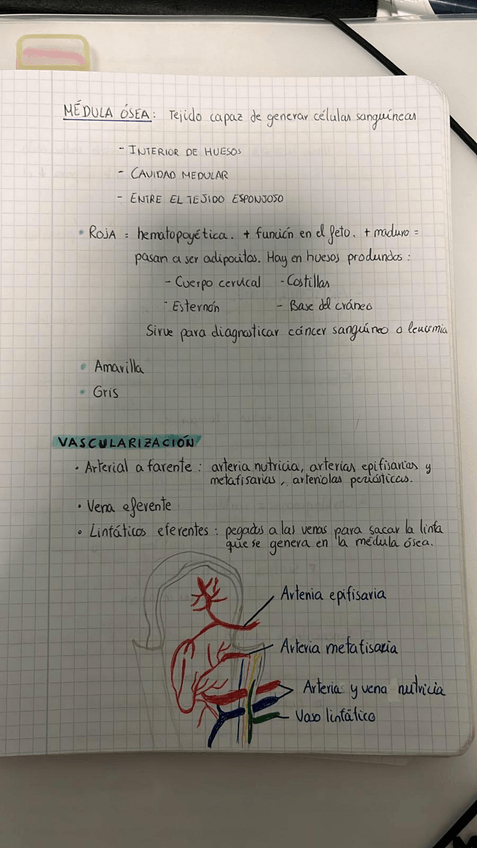 MÉDULA ÓSEA: Tejido capaz de generar células sanguíneas
- INTERIOR DE HUESOS
- CAVIDAD MEDULAR
- ENTRE EL TEJIDO ESPONJOSO
• Roja = hematopoyética. + función en el feto. + maduro =
pasan a ser adipocitos. Hay en huesos profundos:
- Cuerpo cervical - Costillas
- Esternón - Base del cráneo
Sirve para diagnosticar cáncer sanguíneo o leucemia
• Amarilla
• Gris
VASCULARIZACIÓN
• Arterial aferente: arteria nutricia, arterias epifisarias y
metafisarias, arteriolas periósticas.
• Vena eferente
• Linfáticos eferentes: pegados a las venas para sacar la linfa
que se genera en la médula ósea.
Arteria epifisaria
Arteria metafisaria
Arteria y vena nutricia
Vaso linfático